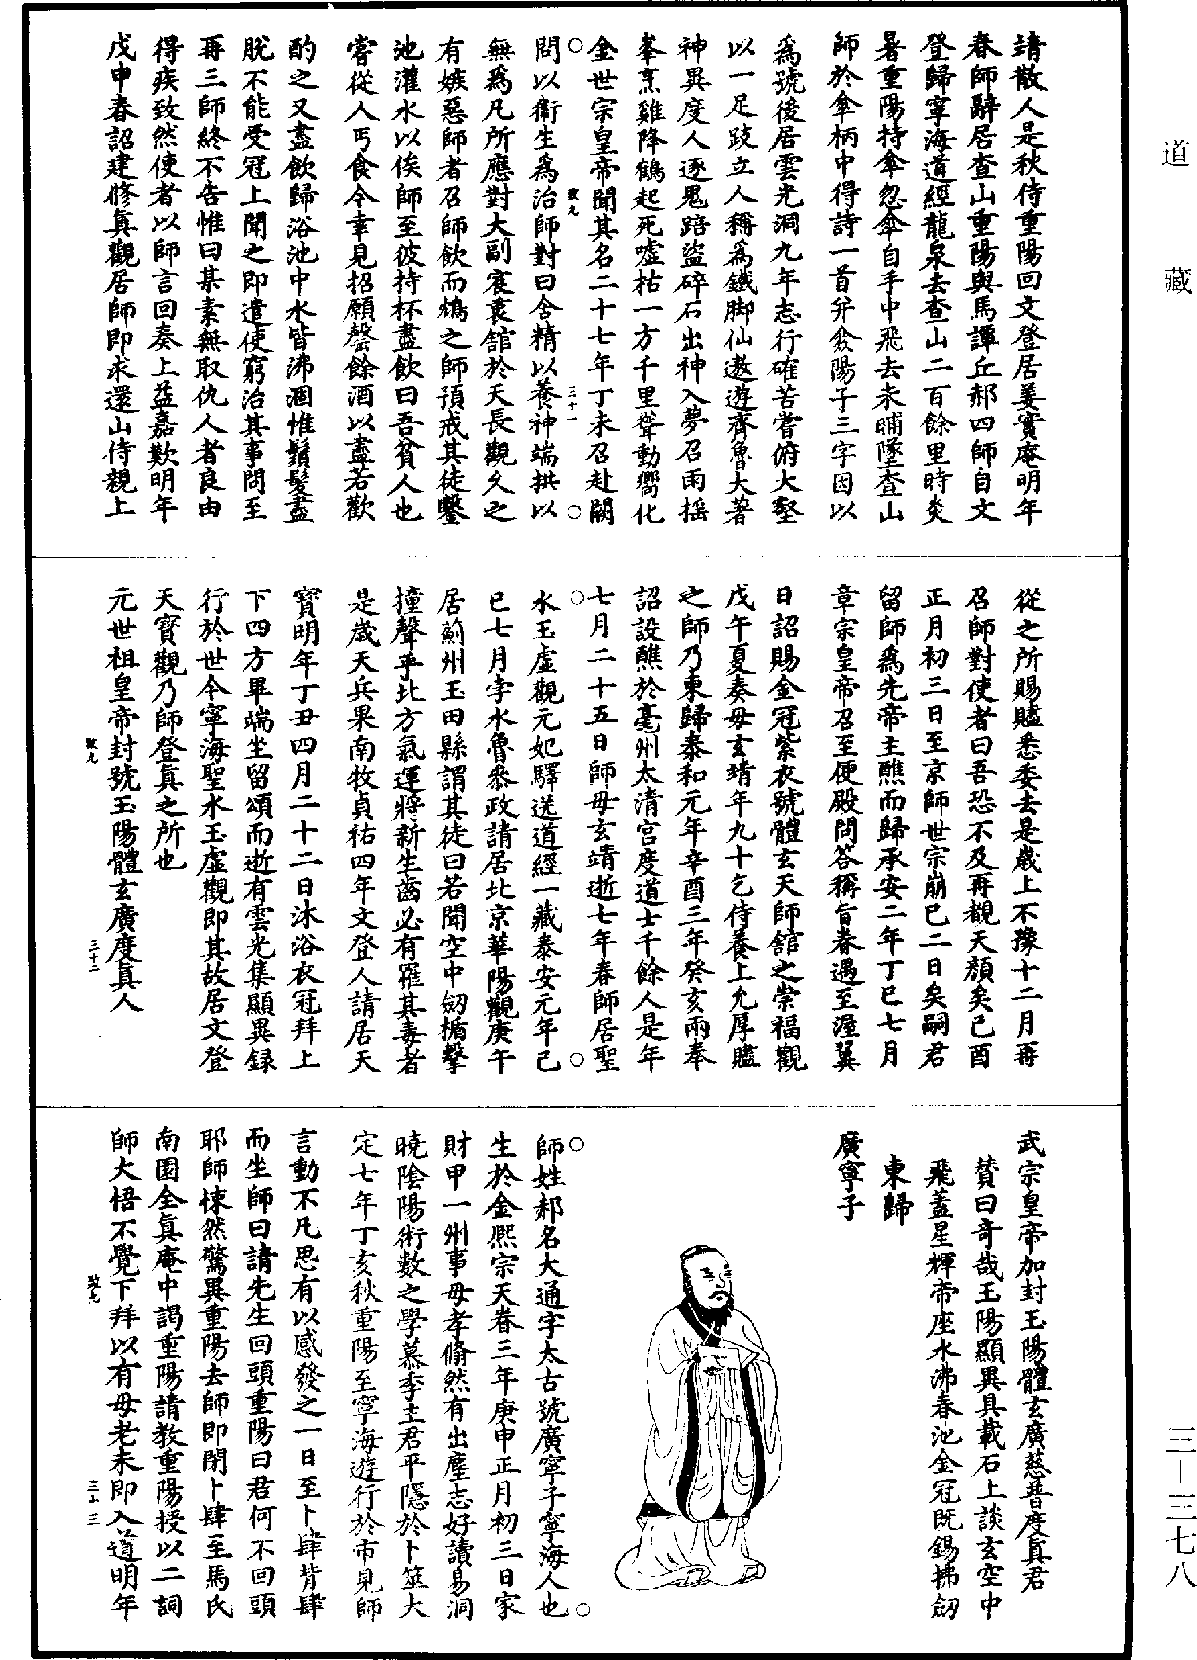 道藏
請散人是秋侍重陽回文登居姜實庵明年
春師辭居查山重陽與馬譚丘郝四師自文
登歸寧海道經龍泉去查山二百餘里時炎
暑重陽持傘忽傘自手中飛去未晡墜查山
師於傘柄中得詩一首并傘陽子三字因以
為號後居雲光洞九年志行確苦嘗俯大壑
以一足跂立人稱為鐵脚仙遨遊齊魯大著
神異度人逐鬼踣盜碎石出神入夢召雨搖
峯烹雞降鶴起死噓枯一方千里聳動嚮化
金世宗皇帝聞其名二十七年丁未召赴闕
問以衞生為治師對曰含精以養神端拱以
無為凡所應對大副宸衷舘於天長觀久之
有嫉惡師者召師飲而鴆之師預戒其徒鑿
池灌水以俟師至彼持杯盡飲曰吾貧人也
嘗從人丐食今幸見招願罄餘酒以盡若歡
酌之又盡飲歸浴池中水皆沸涸惟鬚髮盡
脫不能受冠上聞之即遣使窮治其事問至
再三師終不告惟曰某素無取仇人者良由
得疾致然使者以師言回奏上益嘉歎明年
戊申春詔建修真觀居師師即求還山侍親上
三十一
從之所賜贐悉委去是歲上不豫十二月再
召師對使者曰吾恐不及再覩天顏矣己酉
正月初三日至京師世宗崩已二日矣嗣君
留師為先帝主醮而歸承安二年丁巳七月
章宗皇帝召至便殿問答稱旨眷遇至渥翼
日詔賜金冠紫衣號體玄天師舘之崇福觀
戊午夏奏母玄靖年九十乞侍養上允厚贐
之師乃東歸泰和元年辛酉三年癸亥兩奉
詔設醮於亳州太清宮度道士千餘人是年
七月二十五日師母玄靖逝七年春師居聖
水玉虛觀元妃驛送道經一藏泰安元年己
巳七月孛水魯叅政請居北京華陽觀庚午
居薊州玉田縣謂其徒曰若聞空中劒楯擊
撞聲乎北方氣運將新生齒必有罹其毒者
是歲天兵果南牧貞祐四年文登人請居天
寶明年丁丑四月二十二日沐浴衣冠拜上
下四方畢端坐留頌而逝有雲光集顯異録
行於世今寧海聖水玉虛觀即其故居文登
天寶觀乃師登真之所也
元世祖皇帝封號玉陽體玄廣度真人
三十二
武宗皇帝加封玉陽體玄廣慈普度真君
賛曰奇哉玉陽顯異具載石上談玄空中
飛蓋星輝帝座水沸春池金冠既錫拂劒
東歸
廣寧子
師姓郝名大通字太古號廣寧子寧海人也
生於金熙宗天眷三年庚申正月初三日家
財甲一州事母孝翛然有出塵志好讀易洞
曉陰陽術數之學慕季主君平隱於卜筮大
定七年丁亥秋重陽至寧海遊行於市見師
言動不凡思有以感發之一日至卜肆背肆
而坐師曰請先生回頭重陽曰君何不回頭
耶師悚然驚異重陽去師即閉卜肆至馬氏
南園全真庵中謁重陽請教重陽授以二詞
師大悟不覺下拜以有母老未即入道明年
三十三
三—三七八